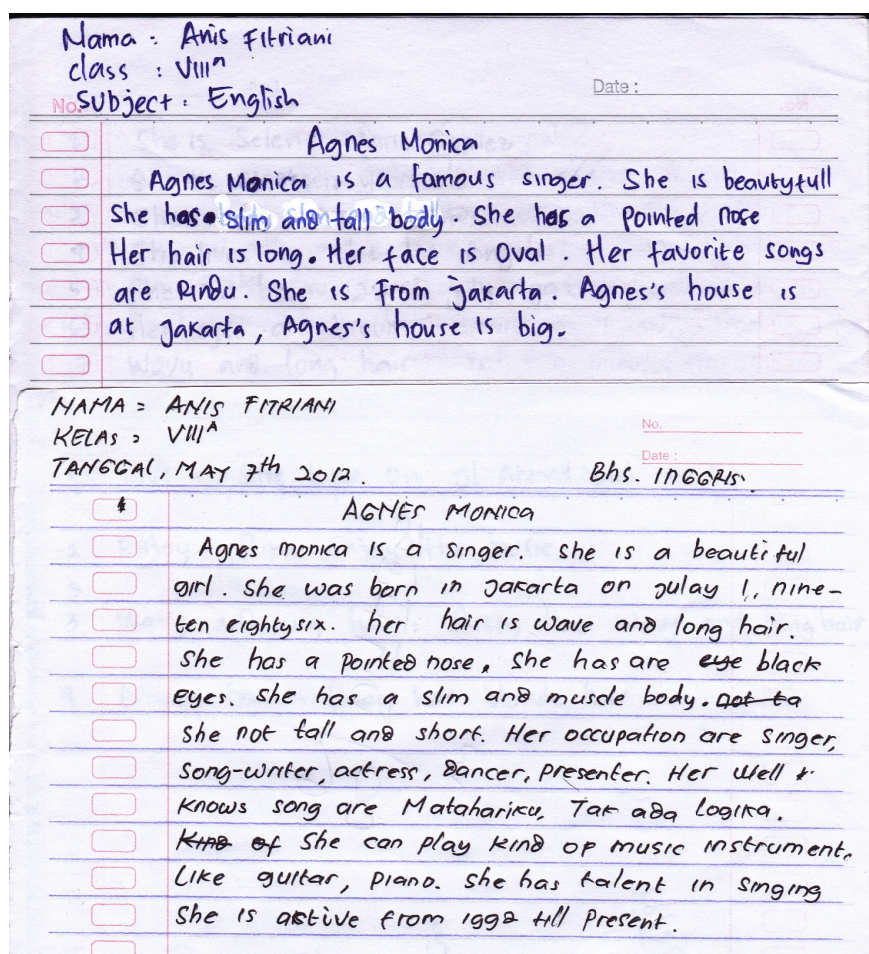 Nama : Anis Fitriani
class : VIIIA
Date :
No. Subject : English
Agnes Monica
Agnes Monica is a famous singer. She is beautyfull
She has slim and tall body. She has a pointed nose
Her hair is long. Her face is oval. Her favorite songs
are Rindu. She is from jakarta. Agnes's house is
at jakarta, Agnes's house is big.
NAMA : ANIS FITRIANI
No.
KELAS : VIIIA
Date :
TANGGAL, MAY 7th 2012. Bhs. INGGRIS.
AGNES MONICA
Agnes monica is a singer. she is a beautiful
girl. She was born in Jakarta on julay 1, nine-
ten eightysix. her hair is wave and long hair.
She has a pointed nose, she has are eye black
eyes. she has a slim and muscle body. not ta
She not tall and short. Her occupation are singer,
song-writer, actress, dancer, presenter. Her well
knows song are Matahariku, Tak ada logika.
Kind of She can play kind op music instrument.
Like guitar, piano. she has talent in singing
She is active from 1992 till present.